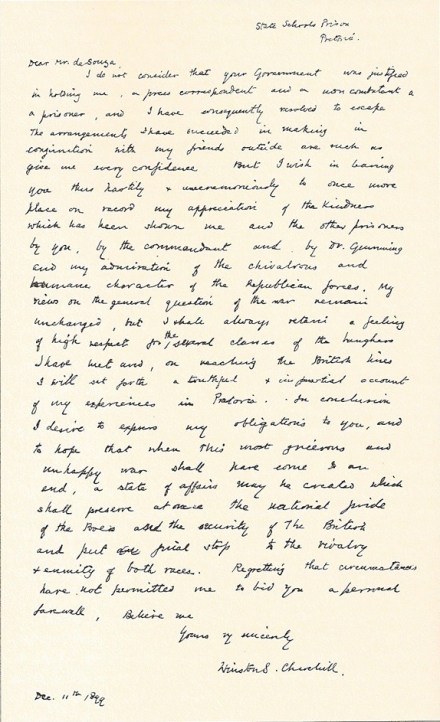 State Schools Prison
Pretoria.
Dear Mr. de Souza,
I do not consider that your Government was justified
in holding me, a press correspondent and a non combatant a
a prisoner, and I have consequently resolved to escape
The arrangements I have succeeded in making in
conjunction with my friends outside are such as
give me every confidence But I wish in leaving
you thus hastily & unceremoniously to once more
place on record my appreciation of the kindness
which has been shown me and the other prisoners
by you, by the commandant and by Dr. Gunning
and my admiration of the chivalrous and
humane character of the Republican forces. My
views on the general question of the war remain
unchanged, but I shall always retain a feeling
of high respect for the several classes of the burghers
I have met and, on reaching the British lines
I will set forth a truthful & impartial account
of my experiences in Pretoria. In conclusion
I desire to express my obligations to you, and
to hope that when this most grievous and
unhappy war shall have come to an
end, a state of affairs may be created which
shall preserve at once the national pride
of the Boers and the security of The British
and put a final stop to the rivalry
& enmity of both races. Regretting that circumstances
have not permitted me to bid you a personal
farewell, Believe me
Yours vy sincerely
Winston S. Churchill.
Dec. 11th 1899